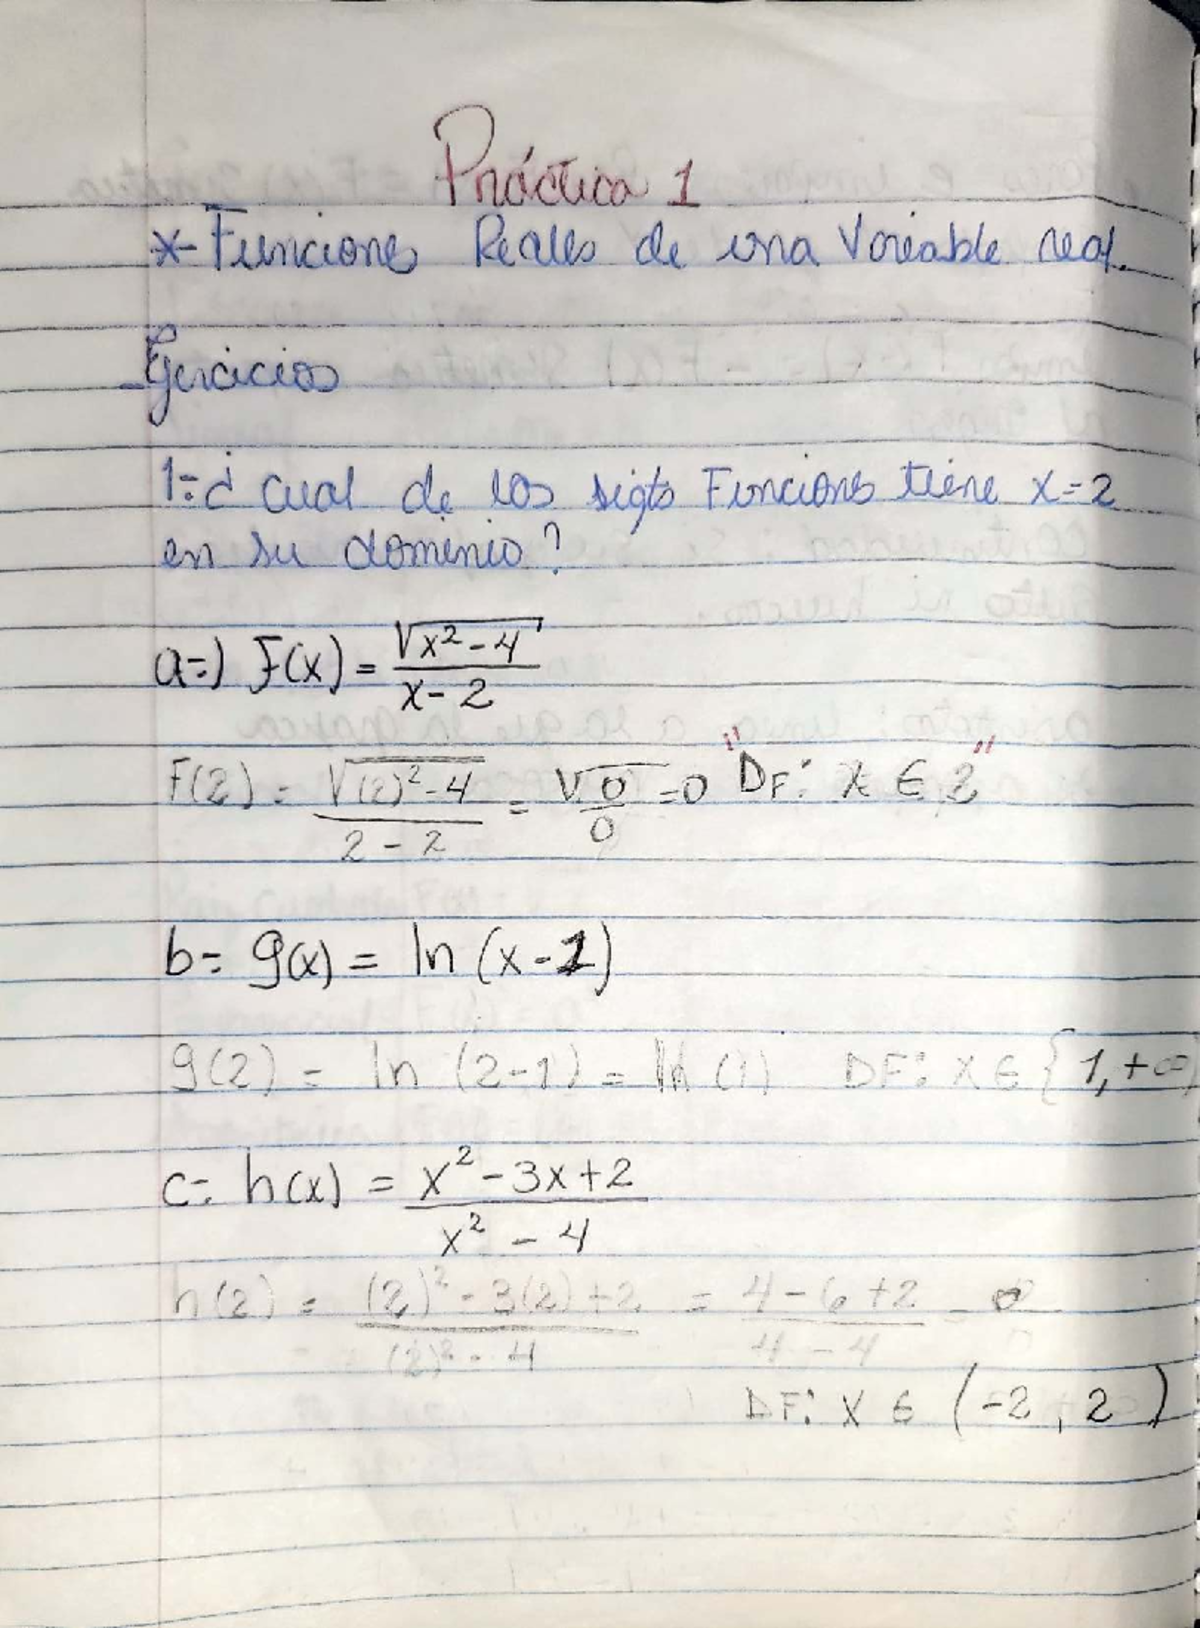 Práctica 1
*- Funciones Reales de una Variable real.
Ejercicios
1=¿ Cual de las sigts Funciones tiene x=2
en su dominio?
a=) F(x) = √(x² - 4) / (x - 2)
F(2) = √((2)² - 4) / (2 - 2) = √0 / 0 = 0 "DF: X ∈ 2"
b= g(x) = ln (x - 1)
g(2) = ln (2-1) = ln (1) DF: X ∈ { 1, +∞)
c= h(x) = (x² - 3x + 2) / (x² - 4)
h(2) = ((2)² - 3(2) + 2) / ((2)² - 4) = (4 - 6 + 2) / (4 - 4) = 0 / 0
DF: X ∈ (-2, 2)